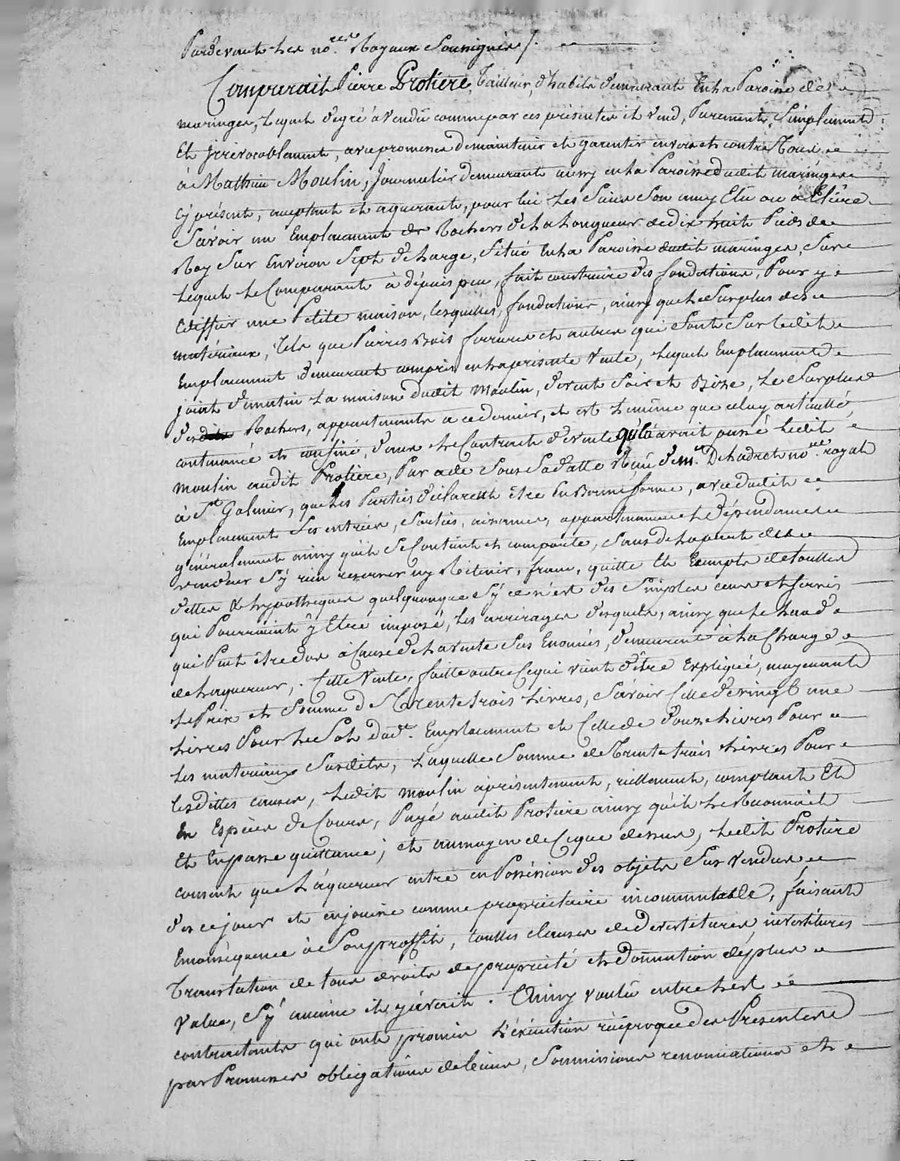 Pardevant les no.res Royaux Soussignés /.
Comparait Pierre Protiere, Tailleur d'habits demeurant En la Paroisse de
maringes, Lequel de gré a vendu comme par ces présentes il vend, Purement, Simplement
Et jrrévocablement, avec promesse de maintenir et garentir envers et contre Tous
à Mathieu Moulin, Journalier demeurant aussy en la Paroisse dudit maringes
cy présent, aceptant et aquerant, pour lui Les Siens Son amy Elu ou à Elire
Savoir un Emplacement de Rochers de la Longueur de dix huit Pieds de
Roy Sur Environ Sept de Large, Situé En la Paroisse dudit maringes, Sur
Lequel le Comparant à depuis peu, fait construire des fondations, Pour y
Ediffier une Petite maison, Lesquelles fondations, ainsy que le Surplus des
matériaux, Tels que Pierres Bois ferrures et autres qui Sont Sur ledit
Emplacement demeurent compris en la présente Vente, Lequel Emplacement
joint de matin La maison dudit Moulin, de vent Soir et Bize, Le Surplus
des Rochers, appartenants a ce dernier, et est Le même que celuy articullé,
continancé et confiné, dans le Contrait de vente qu'en avait passé Ledit
Moulin audit Protiere, Par acte Sous Sa datte Reçu de M.e Dehadrets no.re royal
à S.t Galmier, que les Parties déclarent être En Bonne forme, avec dudit
Emplacement Ses entrées, Sorties, aisances, appartenances et Dépendances
généralement ainsy qu'il Se Contient et comporte, Sans de la part du
vendeur S'y rien reserver ny Retenir, franc, quitte Et Exempte de touttes
dettes & hypotheques quelquonque Sy ce n'est des Simples cens et Servis
qui Pourraient y Etre imposé, Les arrérages desquels, ainsy que le Laods
qui Peut être du a Cause de la vente Ses Enoncés, demeurent à la Charge
de L'aquereur. Cette Vente, faitte outre ce qui vient d'être Expliqué, moyenant
Le Prix et Somme de Trente trois Livres, Savoir Celle de vingt une
Livres Pour le Sol dud.t Emplacement et Celle de douze Livres Pour
Les matériaux Susdits, Laquelle Somme de Trente trois Livres Pour
lesdittes causes, Ledit Moulin à présentement, réellement, comptant Et
En Espèces de Cours, Payé audit Protiere ainsy qu'il Le Reconnait
Et En passe quittance; et au moyen de Ce que dessus, Ledit Protiere
consent que L'aquereur entre en Possession des objets Sus vendus,
des ce jour et en jouisse comme propriétaire incommutable, faisant
En conséquence à Son proffit, touttes clauses de devestitures investitures
Translation de tous droits de propriété et Donnation de plus
Value, S'y aucune il y avait. Ainsy voulu entre Les
contractants qui ont promis L'éxécution réciproque des Presentes
par Promesses obligations de biens, Soumissions renonciations et